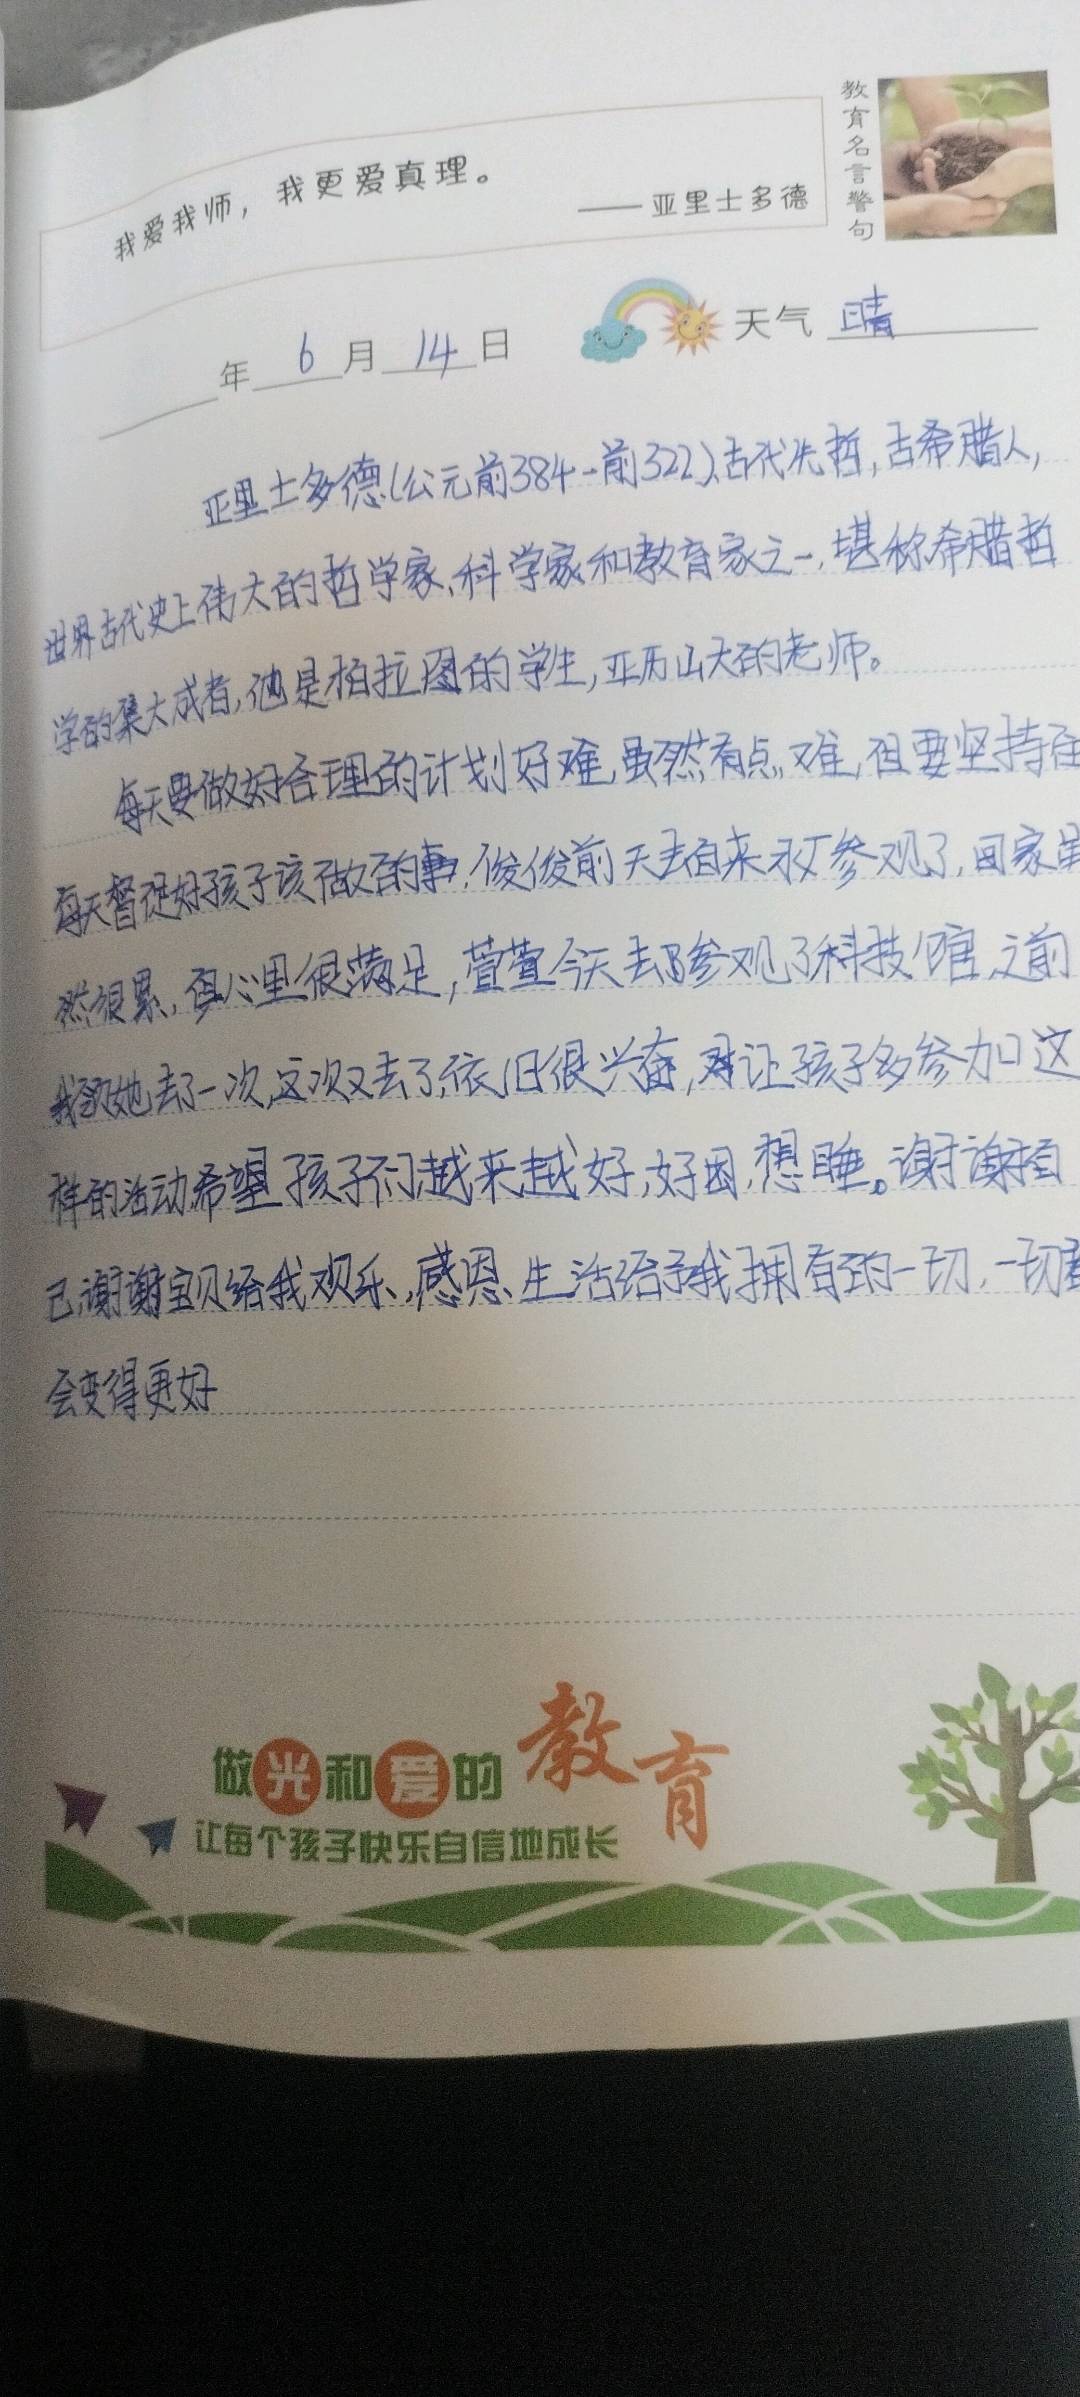 教育名言警句
我爱我师，我更爱真理。
——亚里士多德
年 6 月 14 日 天气 晴
亚里士多德(公元前384-前322),古代先哲,古希腊人,
世界古代史上伟大的哲学家、科学家和教育家之一,堪称希腊哲
学的集大成者,他是柏拉图的学生,亚历山大的老师。
每天要做好合理的计划好难,虽然有点难,但要坚持在
每天督促好孩子该做的事,俊俊前天去自来水厂参观了,回家虽
然很累,但心里很满足,萱萱今天去参观了科技馆,之前
我和她去了一次,这次又去了,依旧很兴奋,让孩子多参加这
样的活动,希望孩子们越来越好,好困,想睡。谢谢自
己,谢谢宝贝给我欢乐,感恩生活给予我拥有的一切,一切都
会变得更好
做光和爱的教育
让每个孩子快乐自信地成长